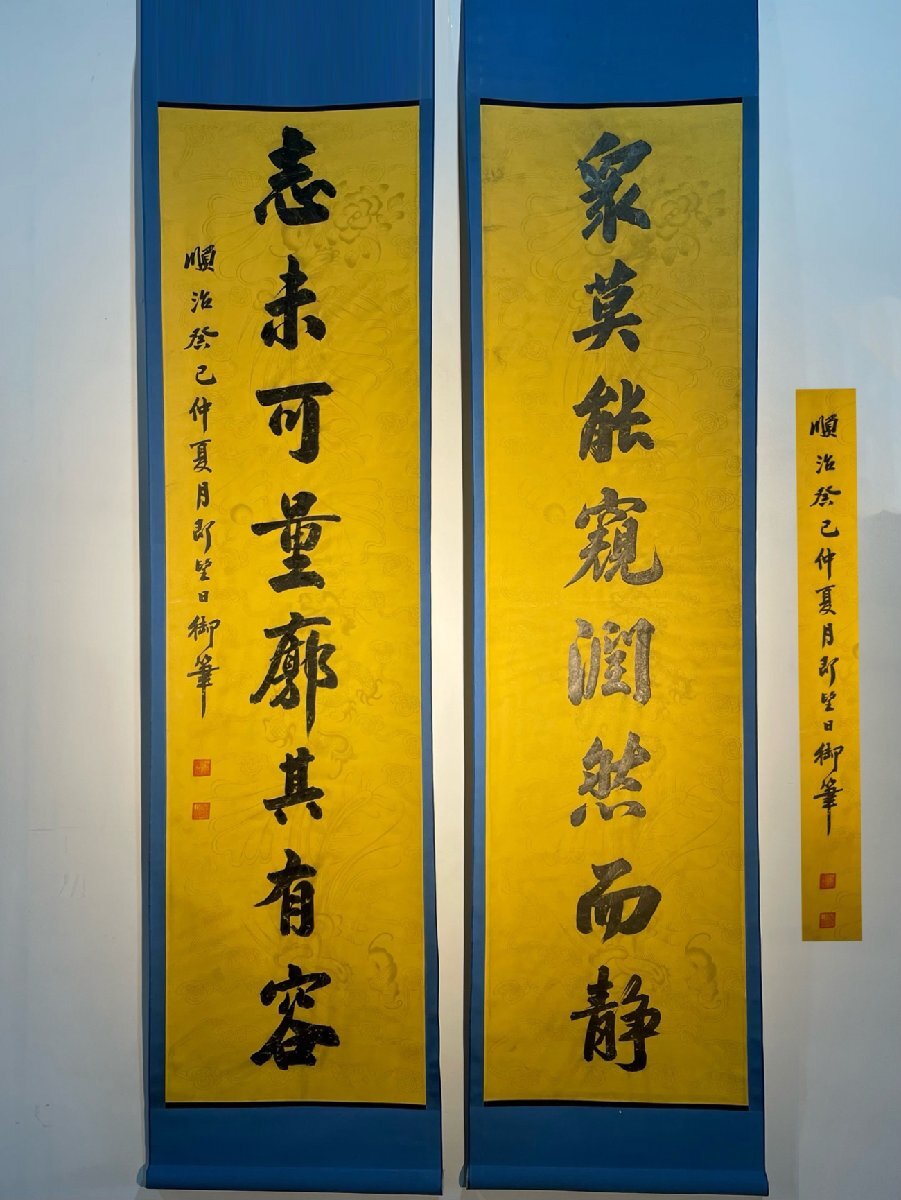 眾莫能窺潤然而靜
志未可量廓其有容
順治癸巳仲夏月即望日御筆
順治癸巳仲夏月即望日御筆